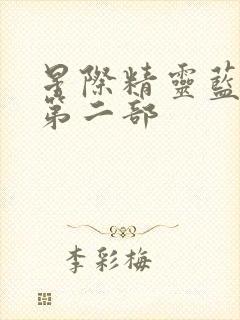 星際精靈藍
第二部
李彩梅